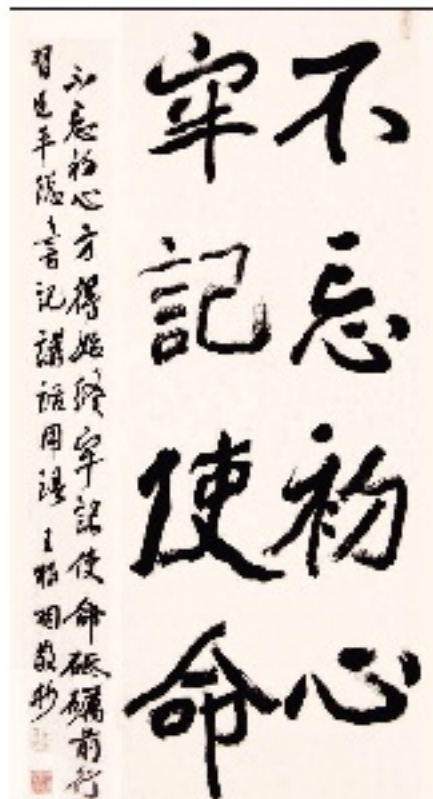 不忘初心
牢記使命
不忘初心方得始終牢記使命砥礪前行
習近平總書記講話用語 王 敬抄